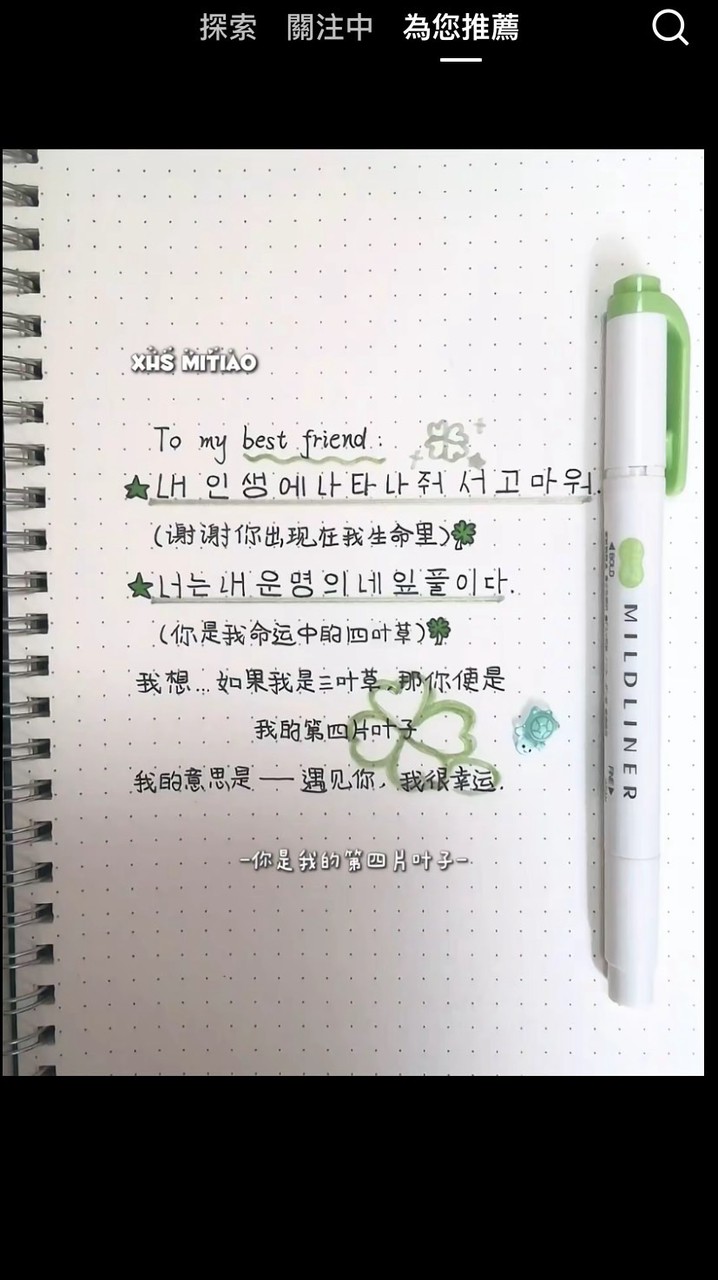 探索 關注中 為您推薦
XHS MITIAO
To my best friend:
내 인생에 나타나줘서 고마워.
(谢谢你出现在我生命里)
너는 내 운명의 네잎풀이다.
(你是我命运中的四叶草)
我想...如果我是三叶草,那你便是
我的第四片叶子
我的意思是——遇见你,我很幸运.
-你是我的第四片叶子-
MILDLINER